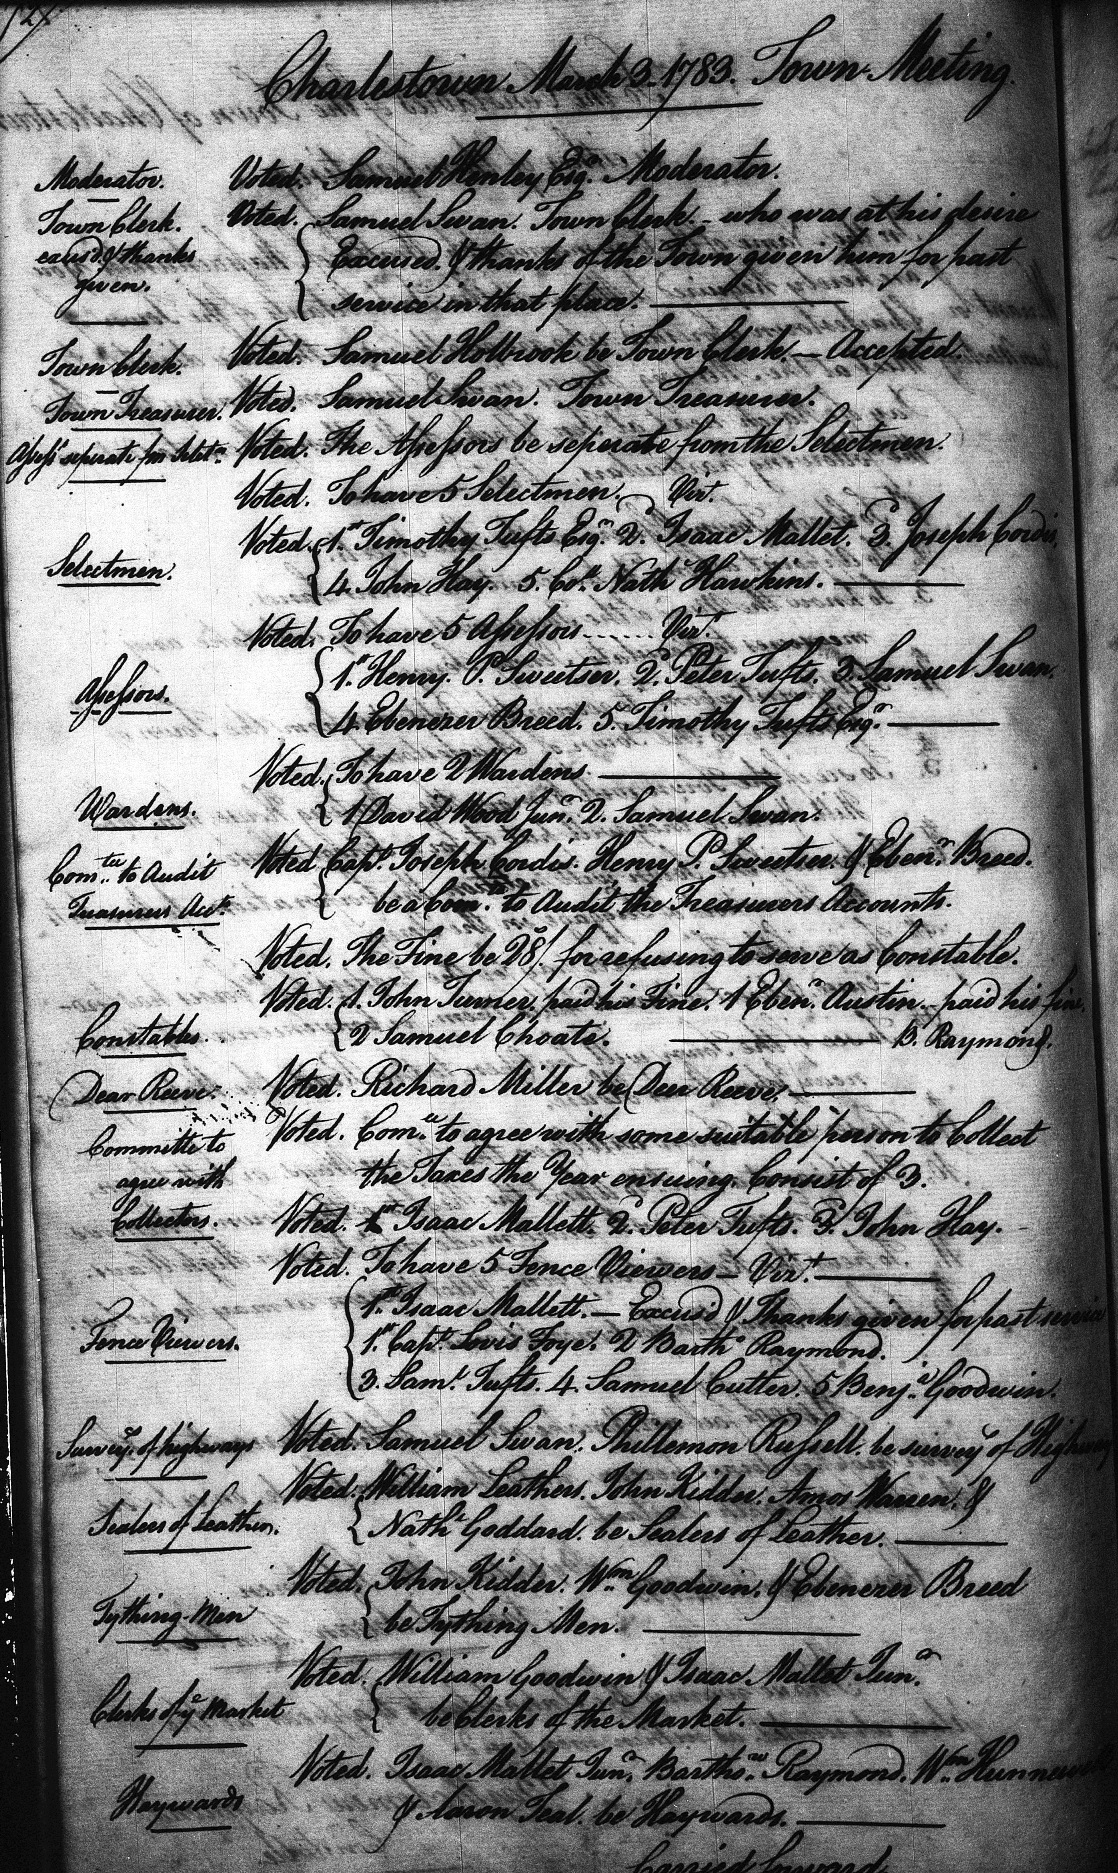 Charlestown March 3. 1783. Town Meeting.
Moderator. Voted. Samuel Henley Esqr. Moderator.
Town Clerk. Voted. Samuel Swan. Town Clerk. - who was at his desire
excusd. & thanks Excused. & thanks of the Town given him for past
given. service in that place.
Town Clerk. Voted. Samuel Holbrook be Town Clerk. - Accepted.
Town Treasurer. Voted. Samuel Swan. Town Treasurer.
Assessrs seperate fm Selctn. Voted. The Assessors be seperate from the Selectmen.
Voted. To have 5 Selectmen. Vizt.
Voted. 1st. Timothy Tufts Esqr. 2d. Isaac Mallet. 3d. Joseph Cordis,
Selectmen. 4. John Hay. 5. Col. Nathl Hawkins.
Voted. To have 5 Assessors ...... Vizt.
Assessors. 1st. Henry. P. Sweetser. 2d. Peter Tufts. 3. Samuel Swan.
4. Ebenezer Breed. 5. Timothy Tufts Esqr.
Voted. To have 2 Wardens.
Wardens. 1 David Wood Junr. 2. Samuel Swan.
Comtee. to Audit Voted Capt. Joseph Cordis. Henry P. Sweetser. & Ebenr. Breed.
Treasurers Accts. be a Comtee. to Audit the Treasurers Accounts.
Voted. The Fine be 28/. for refusing to serve as Constable.
Voted. 1. John Turner, paid his Fine. 1 Ebenr. Austin - paid his fine.
Constables. 2 Samuel Choate. B. Raymond.
Dear Reeve. Voted. Richard Miller be Deer Reeve.
Committe to Voted. Comee. to agree with some suitable person to Collect
agree with the Taxes the Year ensuing. Consist of 3.
Collectors. Voted. 1st Isaac Mallett. 2d. Peter Tufts. 3d. John Hay.
Voted. To have 5 Fence Viewers - Vizt.
1st. Isaac Mallett. - Excusd & Thanks given for past service
Fence Viewers. 1st. Capt. Lovis Foye. 2 Barthw Raymond.
3. Saml. Tufts. 4. Samuel Cutter. 5 Benja. Goodwin.
Survey. of highways Voted. Samuel Swan. Phillemon Russell. be survey of Highway
Voted. William Leathers. John Kidder. Amos Warren. &
Sealers of Leather. Nathl Goddard. be Sealers of Leather.
Voted. John Kidder. Wm. Goodwin. & Ebenezer Breed
Tything-Men be Tything Men.
Voted. William Goodwin & Isaac Mallet Junr.
Clerks of ye Market be Clerks of the Market.
Voted. Isaac Mallet Junr. Barthow. Raymond. Wm.
Haywards & Aaron Teal. be Haywards.
Carried forward